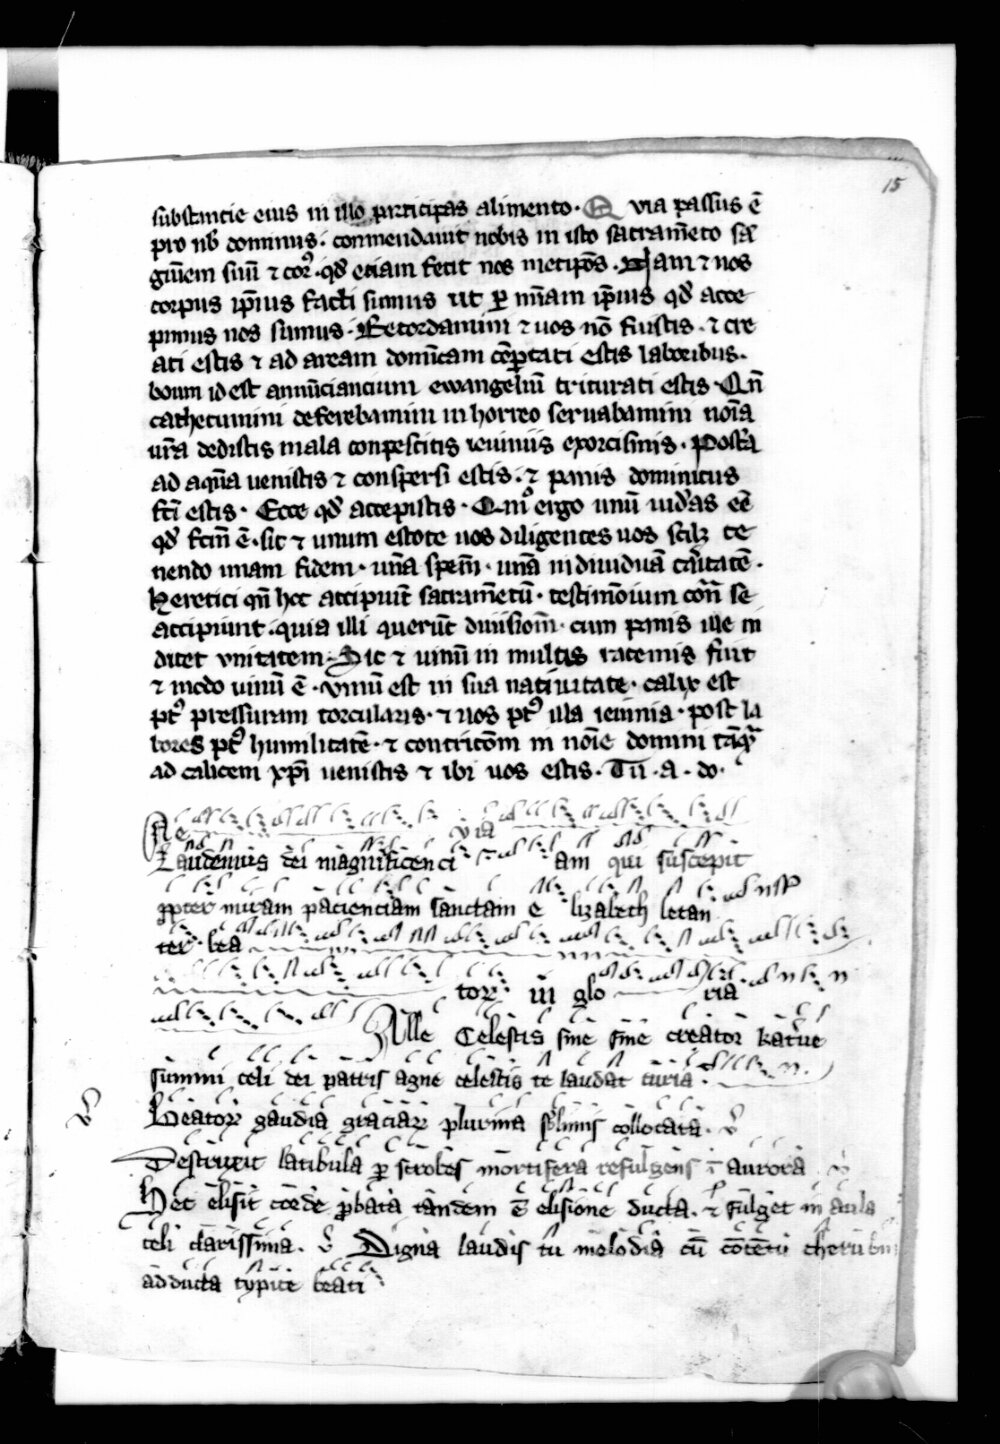 15
substancie eius in illo participas alimento. Quia passus ē
pro nb̄ dominus. conmendauit nobis in isto sacram̄eto sā
guinem suū ⁊ corꝰ. qd̄ etiam fecit nos metip̄os. Nam ⁊ nos
corpus ip̄ius facti sumus ut p̄ mīam ip̄ius qd̄ acce
pimus nos sumus. Recordamini ⁊ uos nō fuistis. ⁊ cre
ati estis ⁊ ad aream dominicam cōportati estis laboribus.
boum id est annūciancium ewangeliū triturati estis. Qn̄
cathecumini deferebamini in horreo seruabamini noīa
ur̄a dedistis mala conpescitis ieiuniis exorcismis. Postea
ad aquā uenistis ⁊ conspersi estis. ⁊ panis dominicus
fc̄i estis. Ecce qd̄ accepistis. Qm̊ ergo unū uid̄as eē
qd̄ fcm̄ ē. sic ⁊ unum estote uos diligentes uos scilz te
nendo unam fidem. unā spem̄. unā indiuiduā caritatē.
Heretici qn̄ hoc accipiūt sacram̄etū. testimōium con̄ se
accipiunt. quia illi querūt diuisiom̄. cum panis ille in
dicet vnitatem. Sic ⁊ uinū in multis racemis fuit
⁊ modo uinū ē. vinū est in sua natiuitate. calix est
ptꝰ pressuram torcularis. ⁊ uos ptꝰ illa ieiunia. post la
bores ptꝰ humilitatē. ⁊ contricōm in noīe domini tāqͣ
ad calicem xp̄i uenistis ⁊ ibi uos estis. Tū. a. do.
Ae via
Laudemus dei magnificenci am qui suscepit
ꝓpter miram pacienciam sanctam e lizabeth letan
ter. bea
toꝝ in glo ria
Alle Celestis sine fine creator
summi celi dei patris agne celestis te laudat turia.
V̄ Beatoꝝ gaudia graciaꝝ plurima sb̄limis collocata. V̄
Destruxit latibula ꝑ scrobes mortifera refulgens ī aurora V̄
Hec elisit cede ꝓbata tandem ē elisione ducta. ⁊ fulget in aula
celi clarissima. V̄ Digna laudis tu melodia cū cōcētu cherubin
adducta typice beati